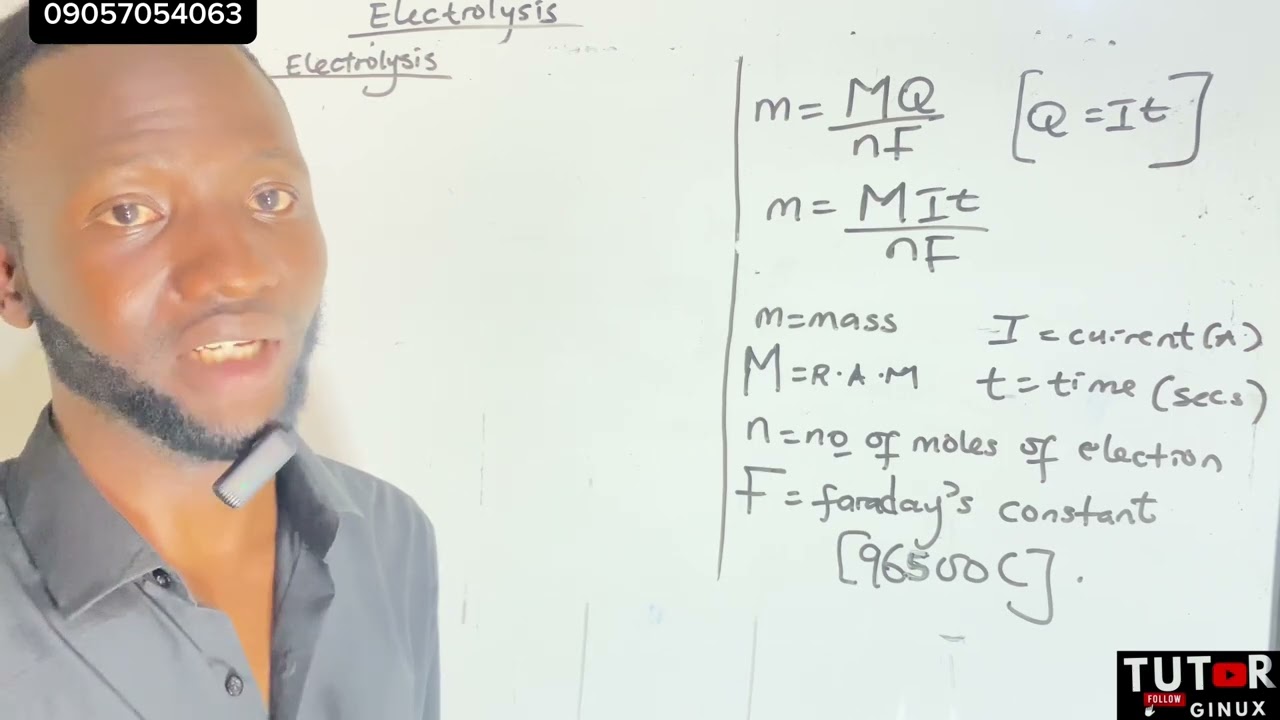 09057054063
Electrolysis
Electrolysis
m = MQ/nF [Q = It]
m = MIt/nF
m = mass
I = current (A)
M = R.A.M
t = time (secs)
n = no of moles of election
F = faraday's constant
[96500C].
TUTOR
FOLLOW
GINUX